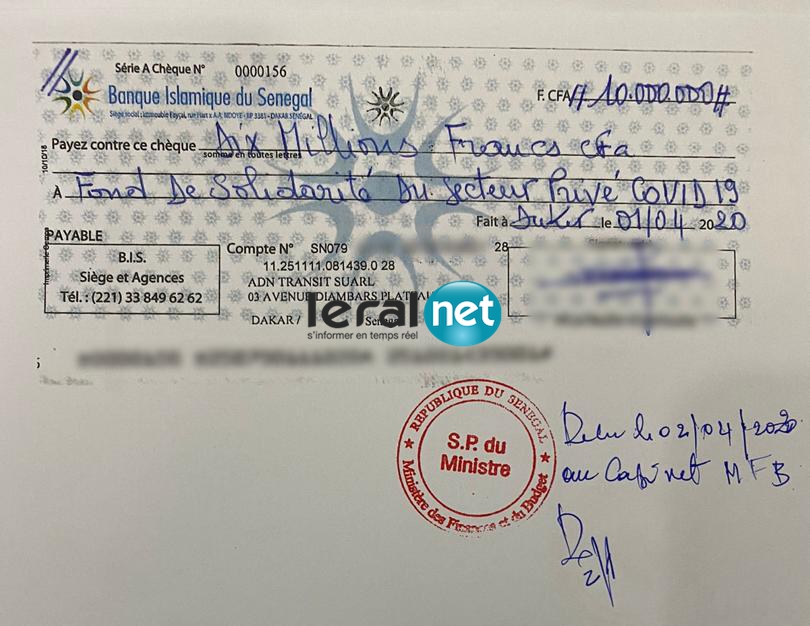 Série A Chèque N° 0000156
Banque Islamique du Senegal
F. CFA # 10.000.000 #
Payez contre ce chèque Dix Millions Francs cfa
somme en toutes lettres
À Fond De Solidarité Du Secteur Privé COVID 19
Fait à Dakar le 01/04 2020
10/10/18
PAYABLE
B.I.S.
Siège et Agences
Tél. : (221) 33 849 62 62
Compte N° SN079
28
11.251111.081439.0 28
ADN TRANSIT SUARL
03 AVENUE DIAMBARS
DAKAR /
leral net
s'informer en temps réel
REPUBLIQUE DU SENEGAL
S.P. du
Ministre
Ministère des Finances et du Budget
le 02/04/2020
au Cabinet MFB